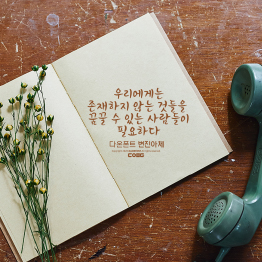 우리에게는
존재하지 않는 것들을
꿈꿀 수 있는 사람들이
필요하다
다온폰트 변진아체